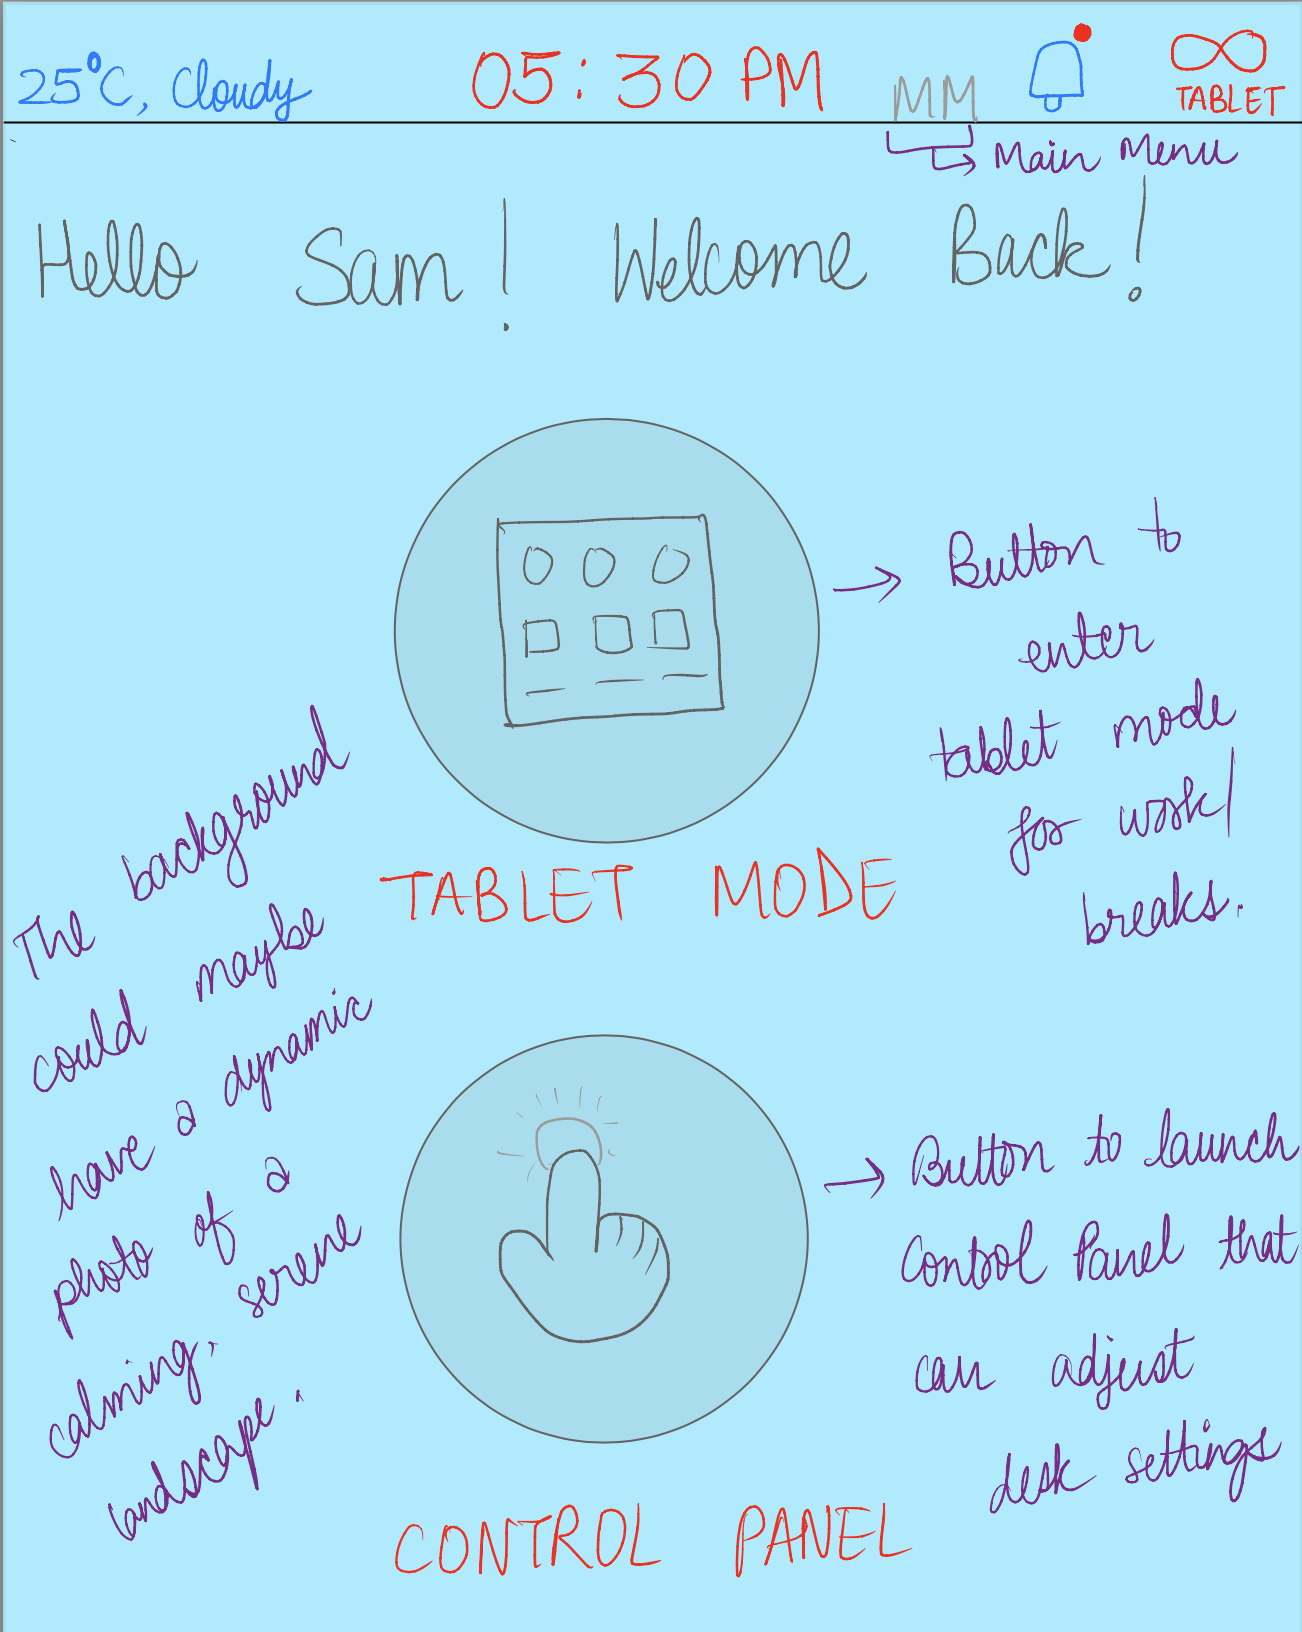 25°C, Cloudy
05:30 PM
MM
TABLET
Main Menu
Hello Sam! Welcome Back!
Button to
enter
tablet mode
for work/
breaks.
TABLET MODE
The background
could maybe
have a dynamic
photo of a
calming, serene
landscape.
Button to launch
Control Panel that
can adjust
desk settings
CONTROL PANEL